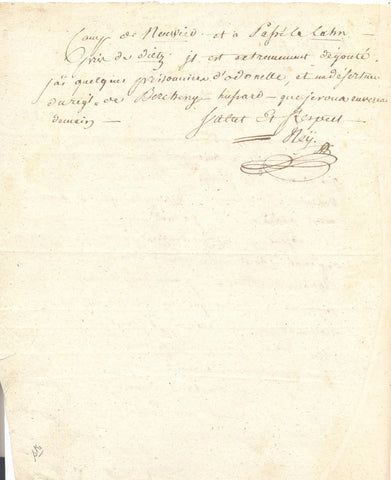 Camp de Neuvied et a Passé la Lahn
Près de dietz il est extremement dégouté
j'ai quelques prisonniers d'odonelle, et un déserteur
du reg.t de Bercheny hussard - que je vous enverrai
demain -
Salut et Respect
Ney.